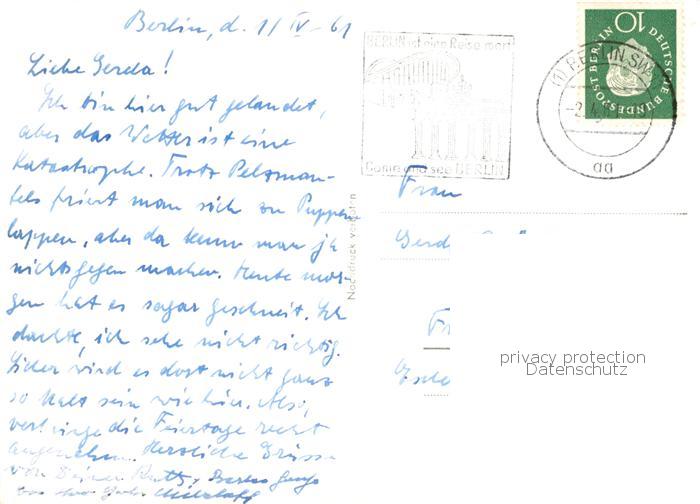 Berlin, d. 1/ IV - 61
Liebe Gerda!
Ich bin hier gut gelandet,
aber das Wetter ist eine
Katastrophe. Trotz Pelzman-
tels friert man sich zu Puppen
lappen, aber da kann man ja
nichts gegen machen. Heute mor-
gen hat es sogar geschneit. Ich
dachte, ich sehe nicht richtig.
Sicher wird es dort nicht ganz
so kalt sein wie hier. Also,
verbringe die Feiertage recht
angenehm. Herzliche Grüsse
von Deiner
BERLIN ist eine Reise wert!
Come and see BERLIN
(1) BERLIN SW
DEUTSCHE BUNDESPOST BERLIN
10
Nachdruck verboten
Frau
Gerd
privacy protection
Datenschutz